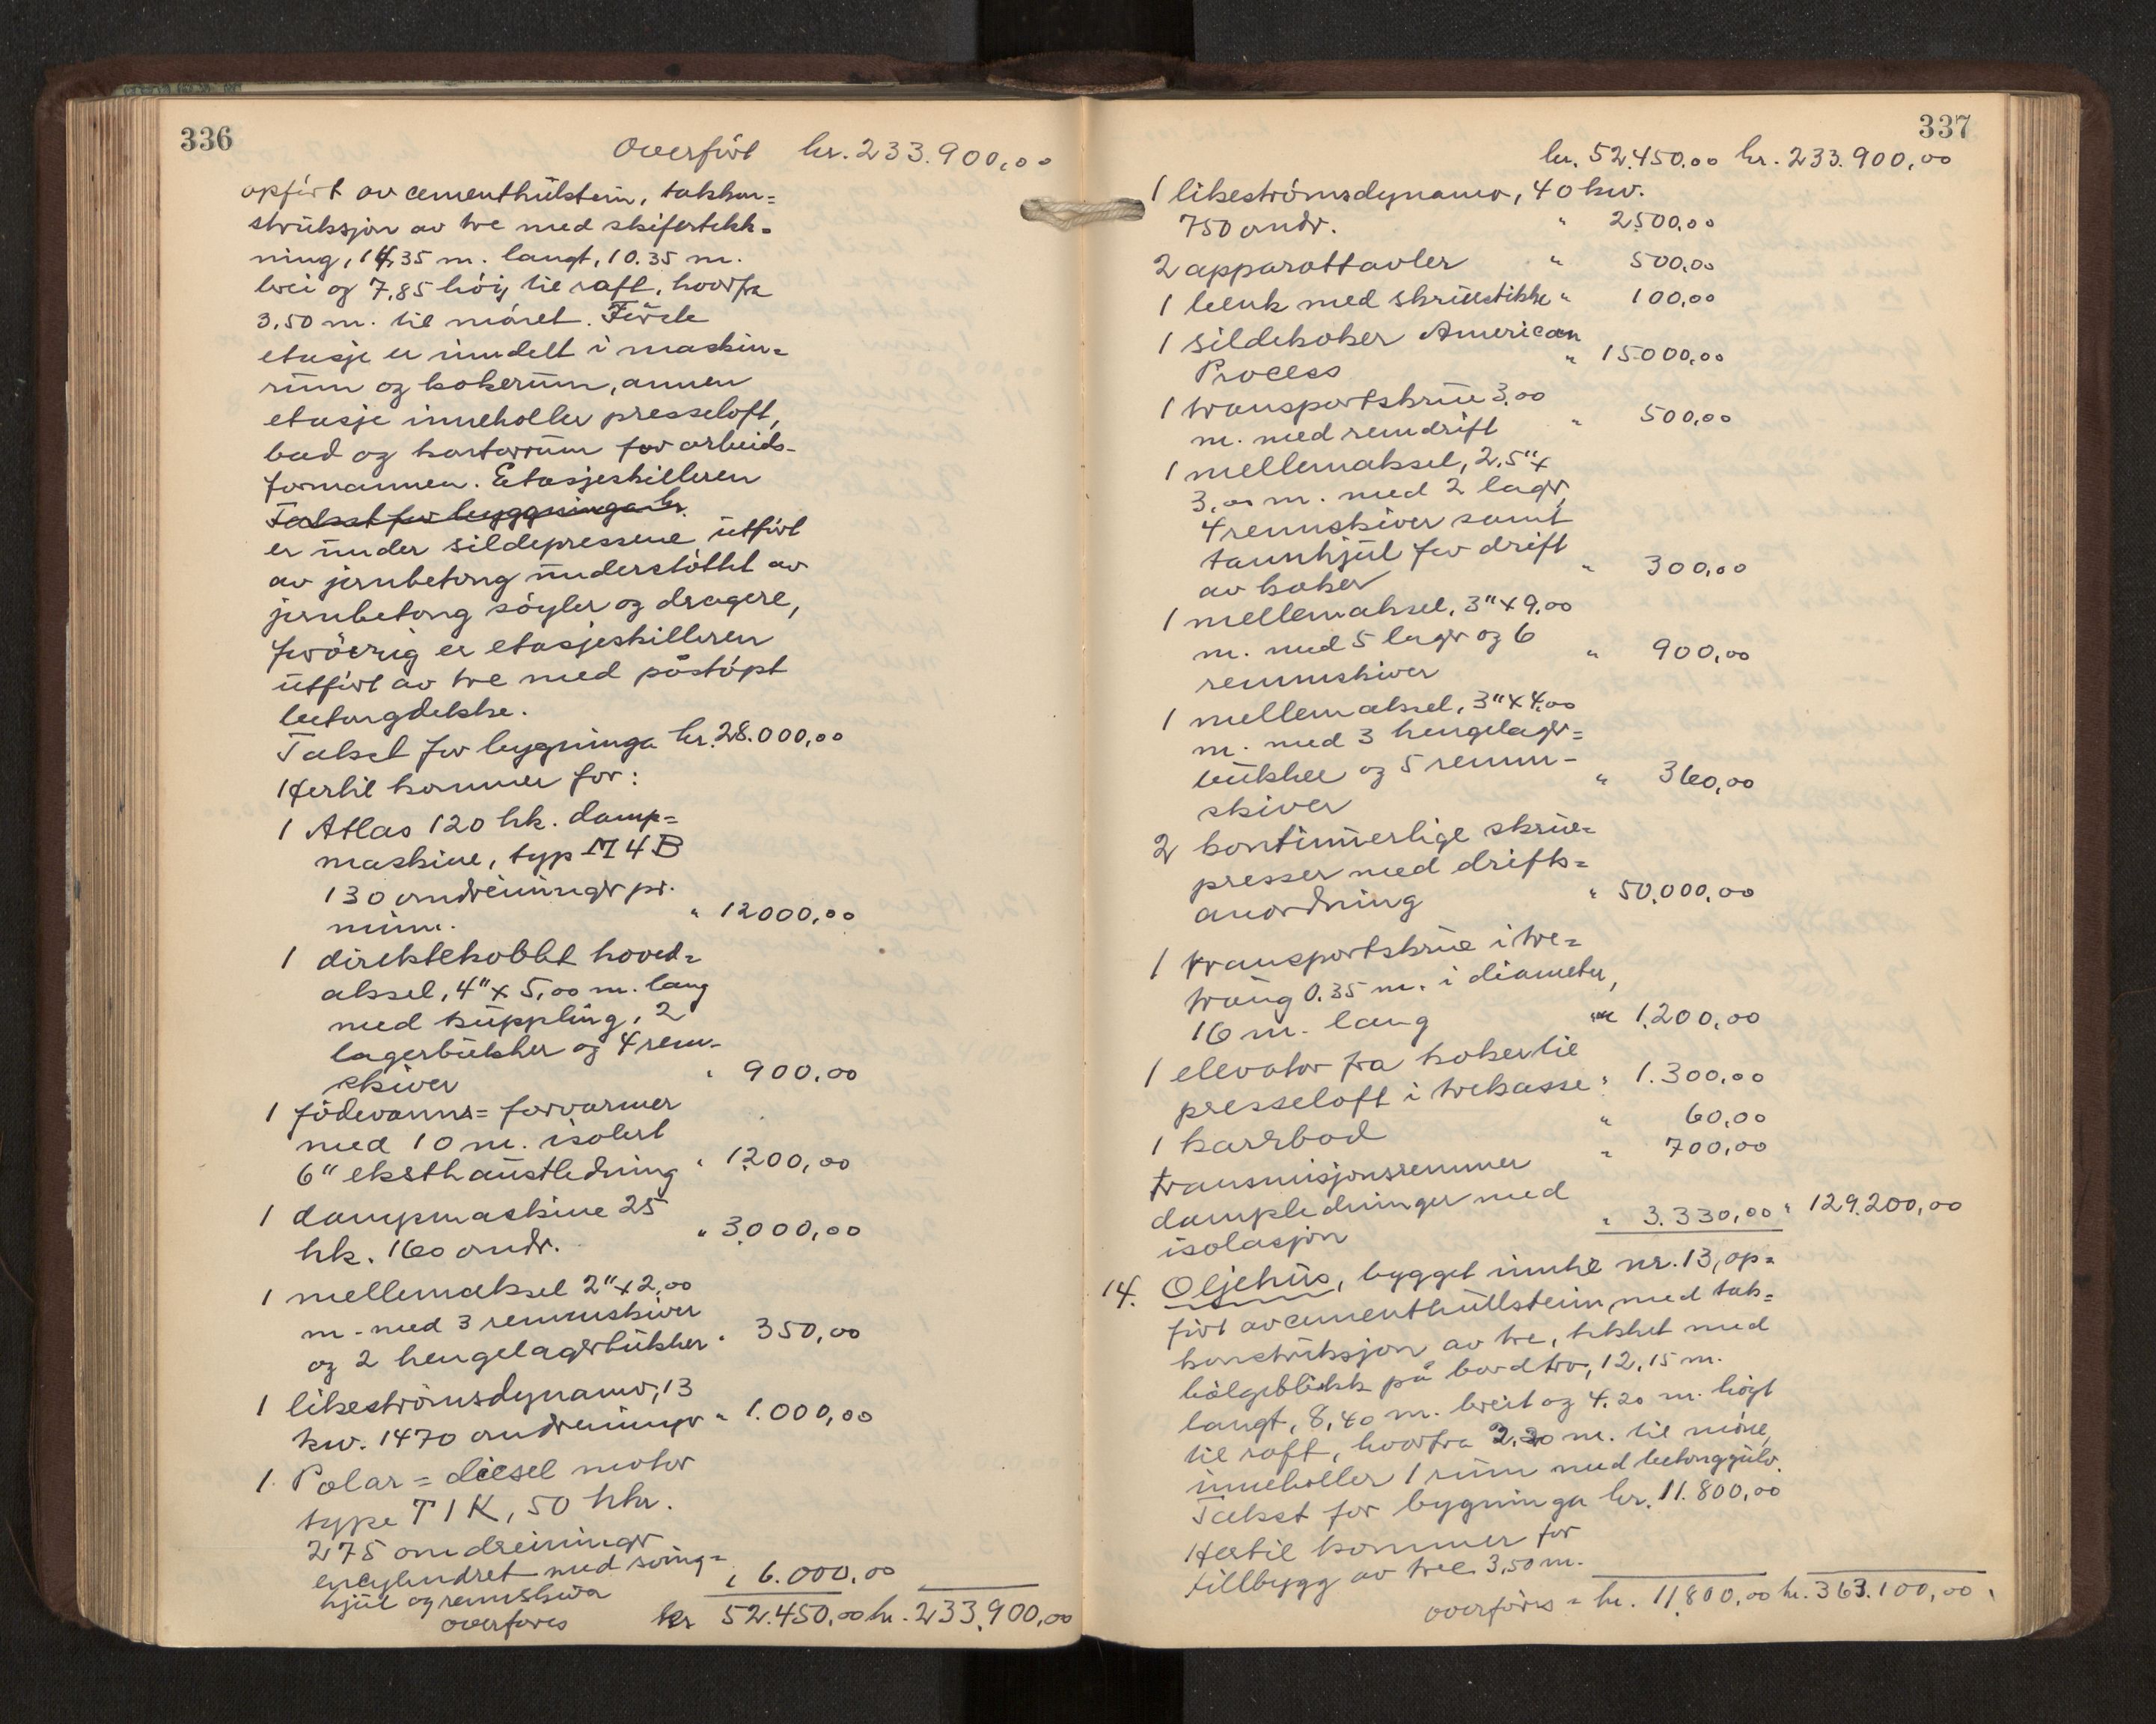 336
Overført kr. 233.900,00
opført av cementhulstein, takkon=
struksjon av tre med skifertekk=
ning, 14,35 m. langt, 10.35 m.
brei og 7,85 høig til raft, hvorfra
3,50 m. til mønet. Første
etasje er inndelt i maskin=
rum og kokerum, annen
etasje inneholler presseloft,
bad og kontorrum for arbeids-
formannen. Etasjeskilleren
Takset for byggninga kr.
er under sildepressene utført
av jernbetong understøttet av
jernbetong søyler og dragere,
forøvrig er etasjeskilleren
utført av tre med påstøpt
betongdekke.
Takst for bygninga kr. 28.000,00
Hertil kommer for:
1 Atlas 120 hk. damp=
maskine, typ M 4 B
130 omdreininger pr.
min. " 12000,00
1 direktekoblet hoved=
aksel, 4" x 5,00 m. lang
med kuppling, 2
lagerbukker og 4 rem-
skiver " 900,00
1 fødevanns= forvarmer
med 10 m. isolert
6" eksthaustledning " 1200,00
1 dampmaskine 25
hk. 160 omdr. " 3000,00
1 mellemaksel 2" x 2,00
m. med 3 remmskiver
og 2 hengelagerbukker " 350,00
1 likestrømsdynamo, 13
kw. 1470 omdreininger " 1.000,00
1. Polar = diesel motor
type T 1 K, 50 hkr.
275 omdreininger
encylindret med sving=
hjul og remskiva " 6.000,00
overføres kr 52.450,00 kr. 233.900,00
337
kr. 52.450,00 kr. 233.900,00
1 likestrømsdynamo, 40 kw.
750 omdr. " 2500,00
2 apparattavler " 500,00
1 benk med skruestikke " 100,00
1 sildekoker American
Process " 15000,00
1 transportskrue 3,00
m. med remdrift " 500,00
1 mellemaksel, 2,5" x
3,00 m. med 2 lager,
4 remmskiver samt
tannhjul for drift
av koker " 300,00
1 mellemaksel, 3" x 9,00
m. med 5 lager og 6
remmskiver " 900,00
1 mellemaksel, 3" x 4,00
m. med 3 hengelager=
bukker og 5 remm-
skiver " 360,00
2 kontinuerlige skrue=
presser med drifts=
anordning " 50.000,00
1 transportskrue i tre=
traug 0.35 m. i diameter,
16 m. lang " 1.200,00
1 elevator fra koker til
presseloft i trekasse " 1.300,00
1 karrbad " 60,00
transmisjonsremmer " 700,00
dampledninger med
isolasjon " 3.330,00 " 129.200,00
14. Oljehus, bygget inntil nr. 13, op=
ført av cementhullstein med tak=
konstruksjon av tre, tekket med
bølgeblikk på bordtro, 12,15 m.
langt, 8,40 m. breit og 4.20 m. høgt
til raft, hvorfra 2,20 m. til møne,
inneholler 1 rum med betonggulv.
Takst for bygninga kr. 11.800,00
Hertil kommer for
tillbygg av tre 3,50 m.
overføres = kr. 11.800,00 kr. 363.100,00